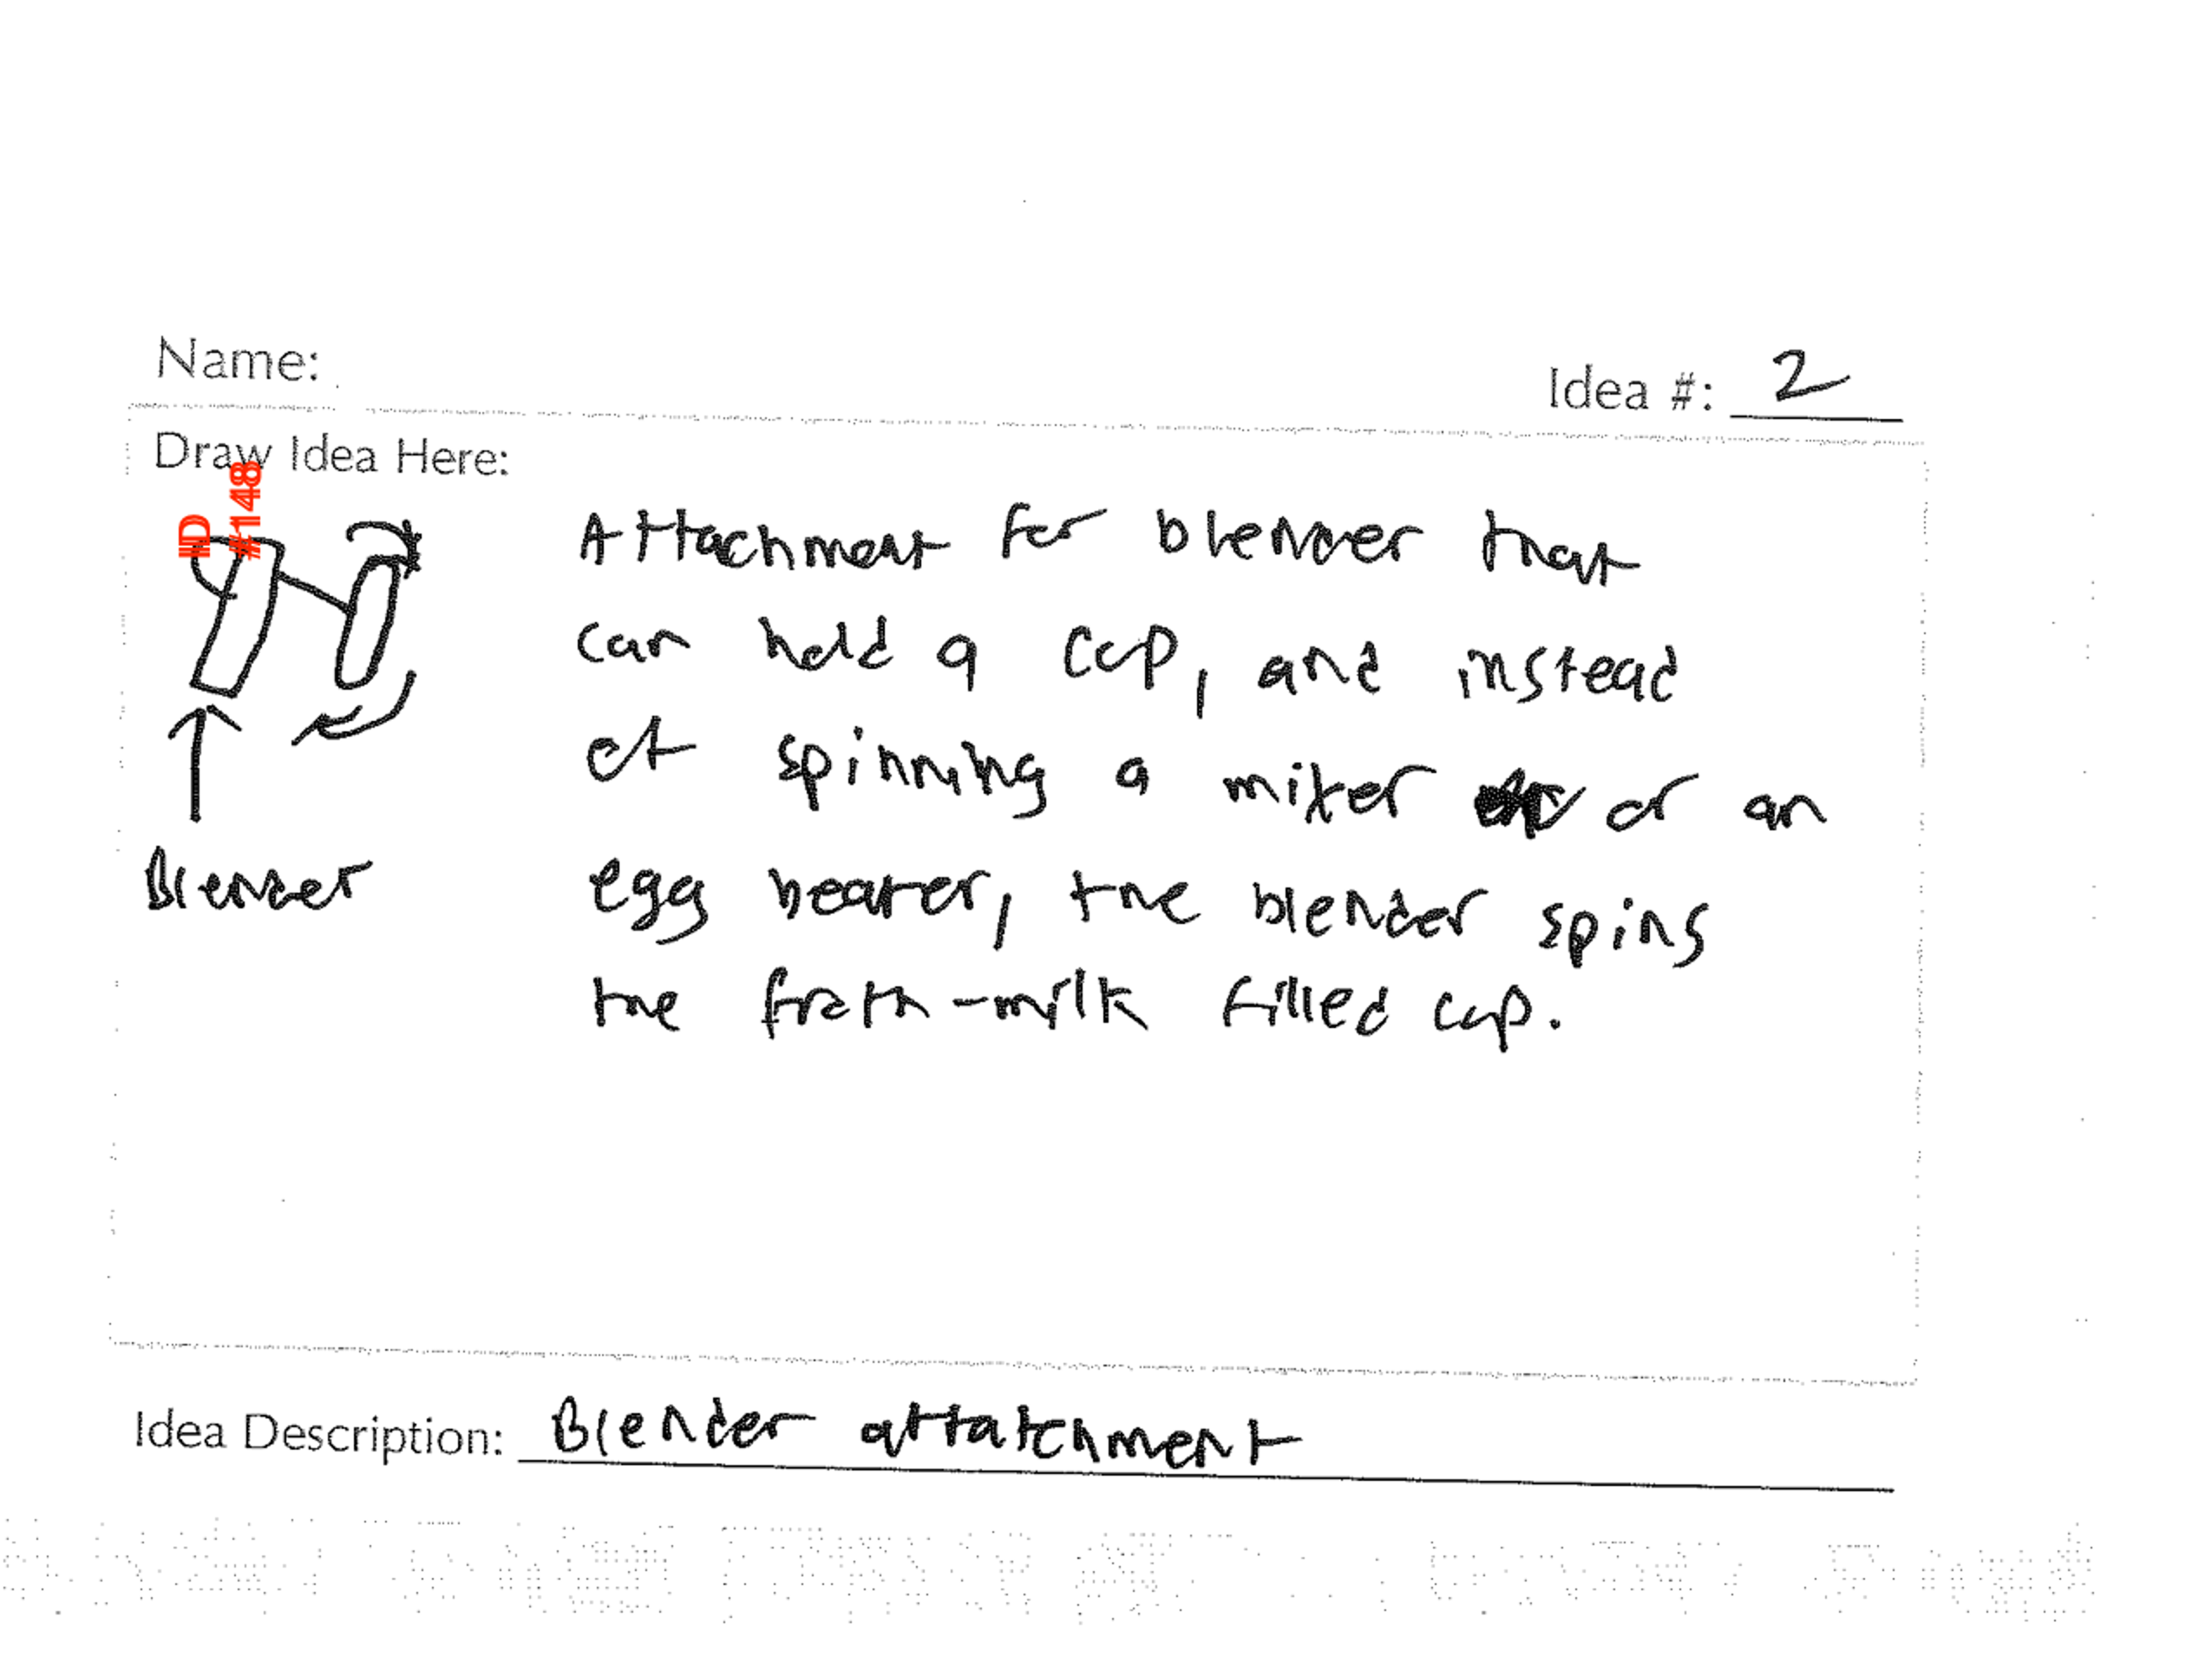 Name:
Idea #: 2
Draw Idea Here:
ID
#148
Attachment for blender that
can hold a cup, and instead
of spinning a mixer or an
egg beater, the blender spins
the froth-milk filled cup.
Blender
Idea Description: Blender attatchment